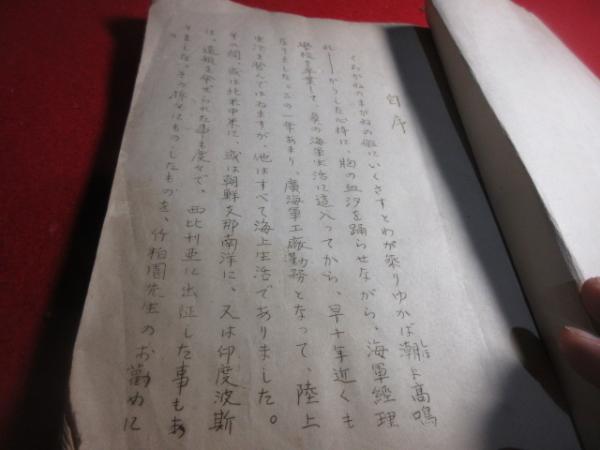 自序
くろがねのまがねの艦にいくさすとわが乗りゆかば潮も高鳴
れ――かうした心持に、胸の血汐を踊らせながら、海軍經理
學校を卒業して、眞の海軍生活に這入つてから、早十年近くも
なりました。この一年あまり、廣海軍工廠勤務となつて、陸上
生活を營んではゐますが、他はすべて海上生活でありました。
その間、或は北米中米に、或は朝鮮支那南洋に、又は印度波斯
に、遠航を命ぜられた事も度々で、西比利亜に出征した事もあ
りました。その折々にものしたものを、竹柏園先生のお薦めに